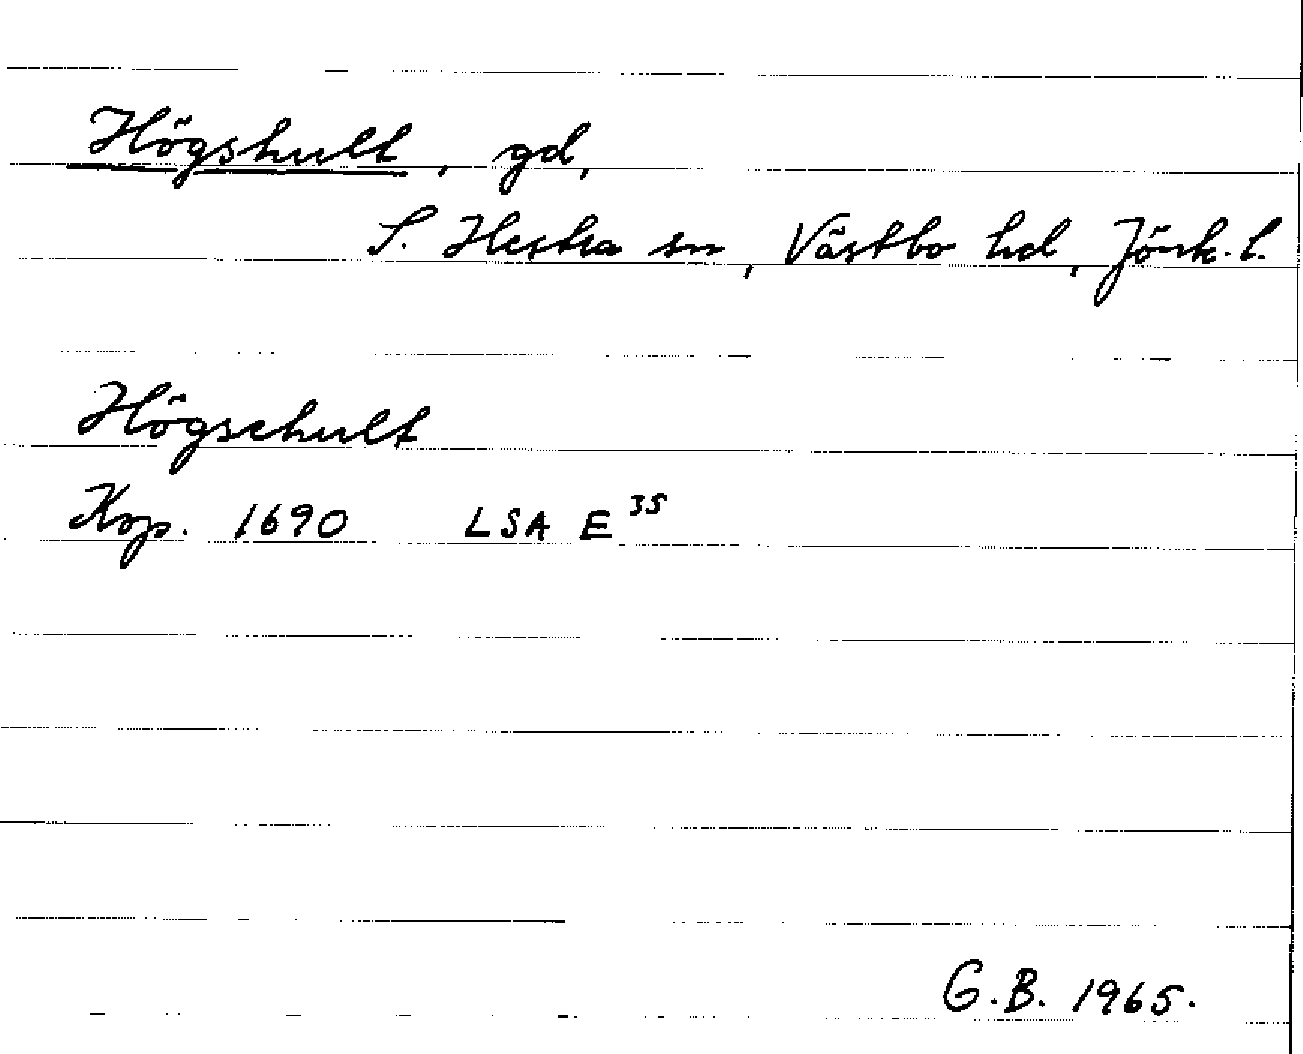 Högshult, gd,
S. Hestra sn, Västbo hd, Jönk. l.
Högschult
Kop. 1690 LSA E 35
G.B. 1965.